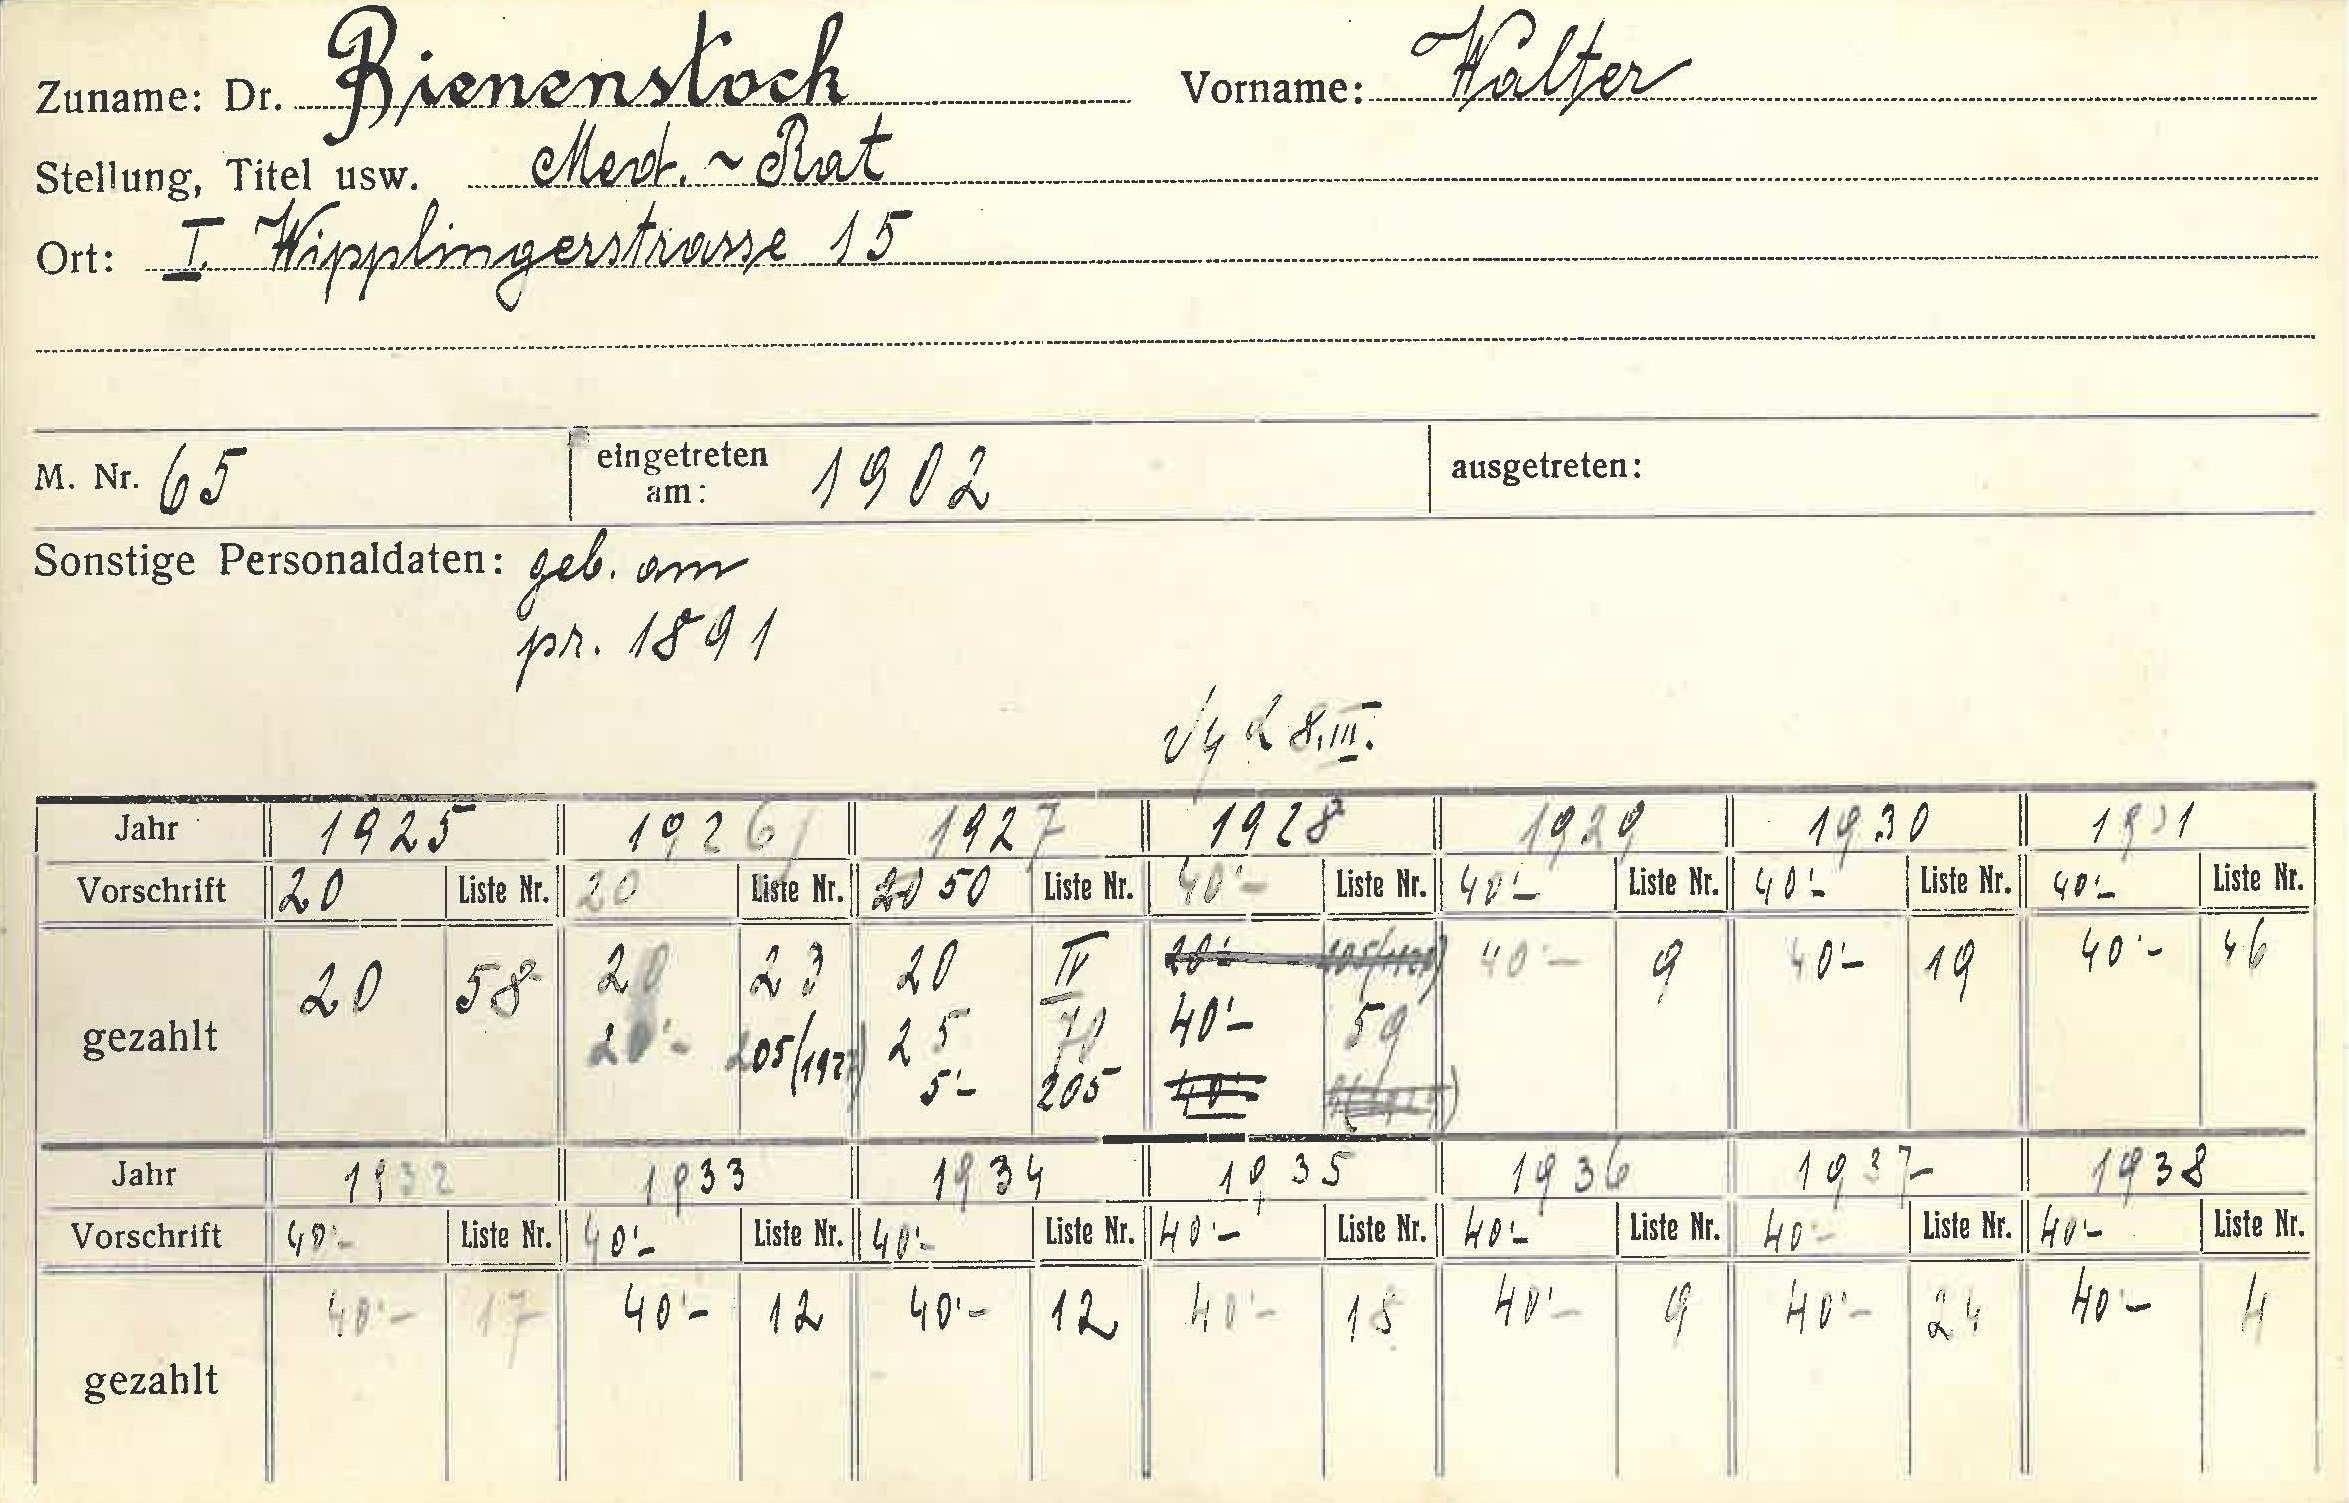 Zuname: Dr. Bienenstock Vorname: Walter
Stellung, Titel usw. Med.-Rat
Ort: I. Wipplingerstrasse 15
M. Nr. 65 eingetreten am: 1902 ausgetreten:
Sonstige Personaldaten: geb. am
pr. 1891
8.III.
Jahr 1925 1926 1927 1928 1929 1930 1931
Vorschrift 20 Liste Nr. 20 Liste Nr. 20 50 Liste Nr. 40'- Liste Nr. 40'- Liste Nr. 40'- Liste Nr. 40'- Liste Nr.
20 58 20 23 20 IV 20'- 205/1927) 40'- 9 40'- 19 40'- 46
gezahlt 20'- 205/1927) 25 70 40'- 59
5'- 205 40'-
Jahr 1932 1933 1934 1935 1936 1937 1938
Vorschrift 40'- Liste Nr. 40'- Liste Nr. 40'- Liste Nr. 40'- Liste Nr. 40'- Liste Nr. 40'- Liste Nr. 40'- Liste Nr.
40'- 17 40'- 12 40'- 12 40'- 18 40'- 9 40'- 24 40'- 4
gezahlt